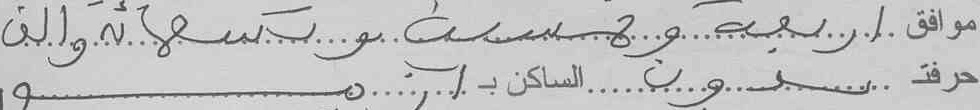 موافق اربعة وخمسين وتسعمائة والف
حرفته بدون الساكن بـ